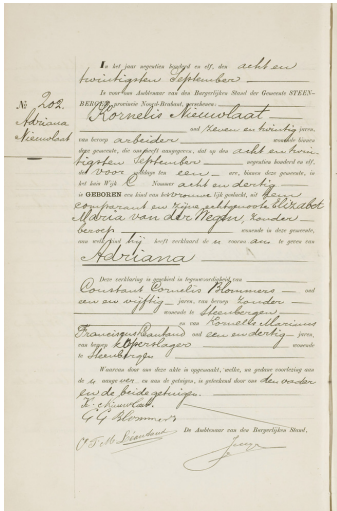 No 202.
Adriana
Nieuwlaat
In het jaar negentien honderd en elf, den acht en
twintigsten September
is voor ons Ambtenaar van den Burgerlijken Stand der Gemeente STEEN-
BERGEN, provincie Noord-Brabant, verschenen:
Kornelis Nieuwlaat
oud zeven en twintig jaren,
van beroep arbeider wonende binnen
deze gemeente, die ons heeft aangegeven, dat op den acht en twin-
tigsten September negentien honderd en elf,
des voor middags ten een ure, binnen deze gemeente, in
het huis Wijk C Nummer acht en dertig
is GEBOREN een kind van het vrouwelijk geslacht, uit hem
comparant en zijne echtgenoote Elizabet
Maria van der Wegen, zonder
beroep wonende in deze gemeente,
aan welk kind hij heeft verklaard de voornaam te geven van
Adriana
Deze verklaring is geschied in tegenwoordigheid van
Constant Cornelis Blommers oud
een en vijftig jaren, van beroep zonder
wonende te Steenbergen
en van Kornelis Marinus
Franciscus oud een en dertig jaren,
van beroep koperslager wonende
te Steenbergen
Waarvan door ons deze akte is opgemaakt, welke, na gedane voorlezing aan
de aangever en aan de getuigen, is geteekend door ons den vader
en de beide getuigen.
K. Nieuwlaat
G G Blommers
De Ambtenaar van den Burgerlijken Stand,